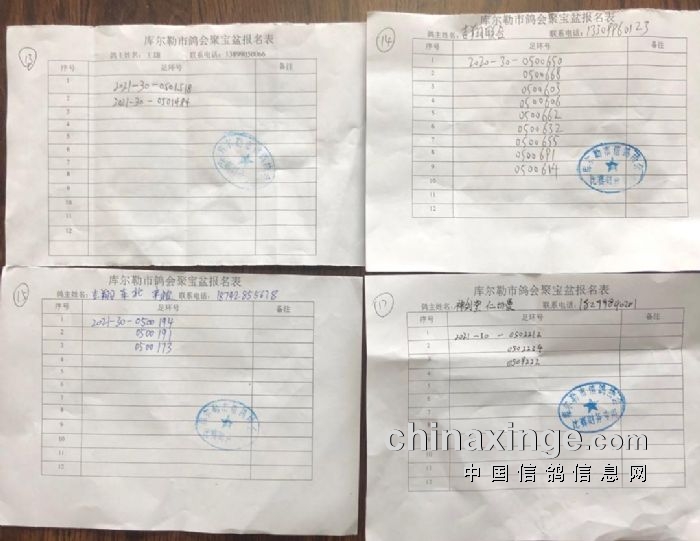 13
库尔勒市鸽会聚宝盆报名表
鸽主姓名： 联系电话：13899030066
序号 足环号 备注
1 2021-30-0501518
2 2021-30-0501484
3
4
5
6
7
8
9
10
11
12
库尔勒市信鸽协会
14
库尔勒市鸽会聚宝盆报名表
鸽主姓名：吉翔联合 联系电话：
序号 足环号 备注
1 2020-30-0500650
2 0500668
3 0500603
4 0500606
5 0500662
6 0500632
7 0500655
8 0500691
9 0500614
10
11
12
库尔勒市信鸽协会
比赛专用
15
库尔勒市鸽会聚宝盆报名表
鸽主姓名： 联系电话：18742855678
序号 足环号 备注
1 2021-30-0500194
2 0500191
3 0500173
4
5
6
7
8
9
10
11
12
库尔勒市信鸽协会
17
库尔勒市鸽会聚宝盆报名表
鸽主姓名： 联系电话：
序号 足环号 备注
1 2021-30-0502212
2 0502224
3
4
5
6
7
8
9
10
11
12
库尔勒市信鸽协会
chinaxinge.com
中国信鸽信息网